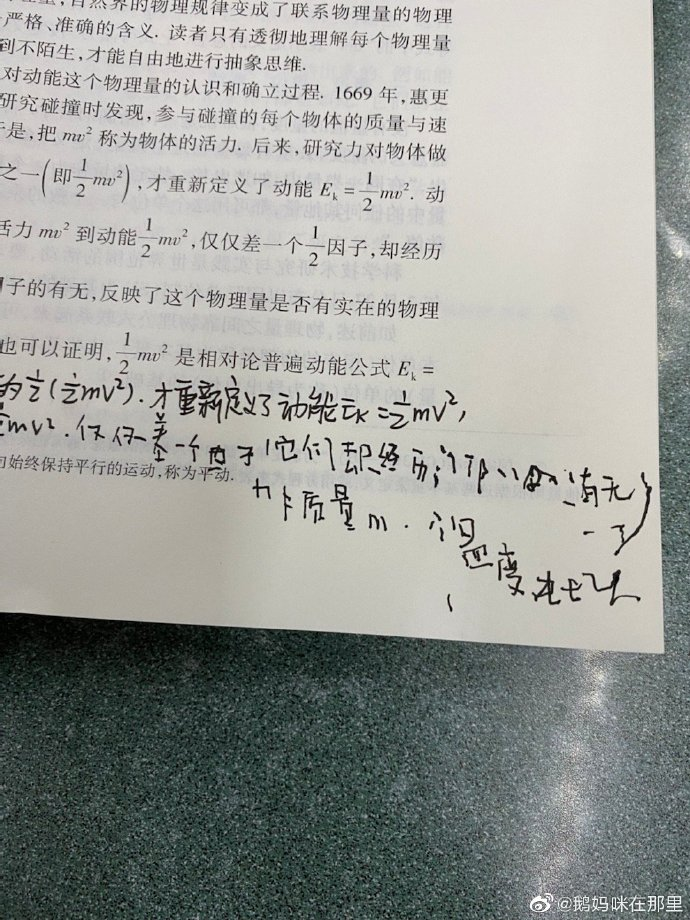 自然界的物理规律变成了联系物理量的物理
严格、准确的含义. 读者只有透彻地理解每个物理量
到不陌生,才能自由地进行抽象思维.
对动能这个物理量的认识和确立过程. 1669 年, 惠更
研究碰撞时发现, 参与碰撞的每个物体的质量与速
是, 把 mv² 称为物体的活力. 后来, 研究力对物体做
之一(即½mv²), 才重新定义了动能 Eₖ = ½mv². 动
活力 mv² 到动能½mv², 仅仅差一个½因子, 却经历
子的有无, 反映了这个物理量是否有实在的物理
也可以证明, ½mv² 是相对论普遍动能公式 Eₖ =
的½(½mv²). 才重新定义了动能Eₖ=½mv²,
½mv². 仅仅差一个因子 它们却经历 有无
司始终保持平行的运动,称为平动.
质量 m. 
度
@鹅妈咪在那里